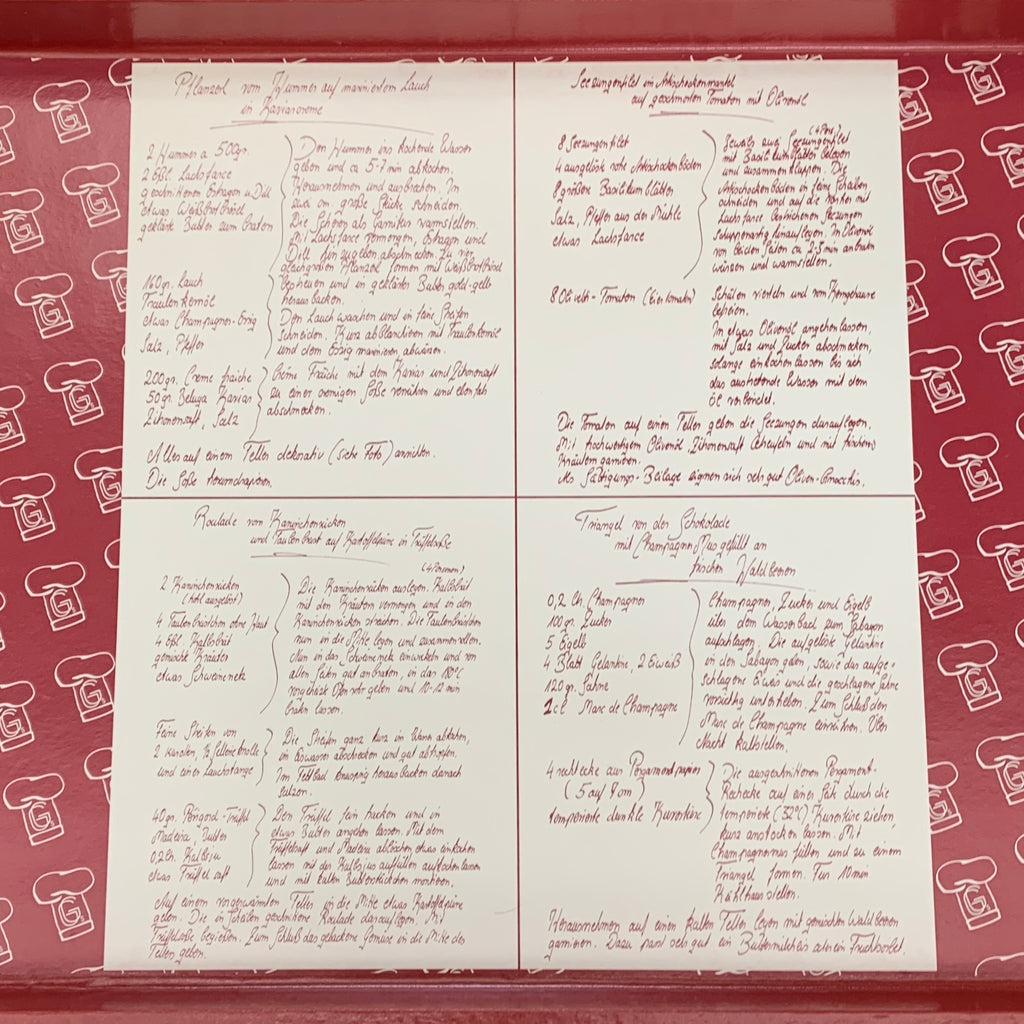 Pflanzerl vom Hummer auf mariniertem Lauch
in Kaviarcreme
2 Hummer a 500gr.
2 Eßl. Lachsfarce
geschnittenen Estragon u. Dill
etwas Weißbrotbrösel
geklärte Butter zum braten
Den Hummer ins kochende Wasser
geben und ca 5-7 min abkochen.
Herausnehmen und ausbrechen. Im
cm große Stücke schneiden.
Die Scheren als Garnitur warmstellen.
Mit Lachsfarce vermengen, Estragon und
Dill hinzugeben abschmecken zu vier
gleichgroßen Pflanzerl formen mit Weißbrotbrösel
bestreuen und in geklärter Butter gold-gelb
herausbacken.
160gr. Lauch
Traubenkernöl
etwas Champagner-Essig
Salz, Pfeffer
Den Lauch waschen und in feine Streifen
schneiden. Kurz abblanchieren mit Traubenkernöl
und dem Essig marinieren abwürzen.
200gr. Creme fraiche
50gr. Beluga Kaviar
Zitronensaft, Salz
Créme Fraîche mit dem Kaviar und Zitronensaft
zu einer cremigen Soße verrühren und ebenfals
abschmecken.
Alles auf einem Teller dekorativ (siehe Foto) anrichten.
Die Soße herumdrapieren.
Seezungenfilet im Artischockenmantel
auf geschmorten Tomaten mit Olivenöl
(4 Pers.)
8 Seezungenfilet
4 ausgelöste rohe Artischockenböden
8 größere Basilikumblätter
Salz, Pfeffer aus der Mühle
etwas Lachsfarce
Jeweils zwei Seezungenfilet
mit Basilikumblätter belegen
und zusammenklappen. Die
Artischockenböden in feine Scheiben
schneiden und auf die vorher mit
Lachsfarce bestrichenen Seezungen
schuppenartig hinauflegen. In Olivenöl
von beiden Seiten ca 2-3 min anbraten
würzen und warmstellen.
8 Olivetti-Tomaten (Eiertomaten)
Schälen vierteln und vom Kerngehäuse
befreien.
In etwas Olivenöl angehen lassen,
mit Salz und Zucker abschmecken,
solange einkochen lassen bis sich
das austretende Wasser mit dem
Öl verbindet.
Die Tomaten auf einen Teller geben die Seezungen darauf legen.
Mit hochwertigem Olivenöl Zitronensaft beträufeln und mit frischen
Kräutern garnieren.
Als Sättigungs-Beilage eignen sich sehr gut Oliven-Gnocchis.
Roulade vom Kaninchenrücken
und Taubenbrust auf Kartoffelpüree in Trüffelsoße
(4 Personen)
2 Kaninchenrücken
(hohl ausgelöst)
4 Taubenbrüstchen ohne Haut
4 Eßl. Kalbsbrät
gemischte Kräuter
etwas Schweinenetz
Die Kaninchenrücken auslegen. Kalbsbrät
mit den Kräutern vermengen und in den
Kaninchenrücken streichen. Die Taubenbrüstchen
nun in die Mitte legen und zusammenrollen.
Nun in das Schweinenetz einwickeln und von
allen Seiten gut anbraten, in das 180°C
vorgeheizte Ofenrohr geben und 10-12 min
braten lassen.
Feine Streifen von
2 Karotten, ½ Sellerieknolle
und einer Lauchstange
Die Streifen ganz kurz in Wasser abkochen,
in Eiswasser abschrecken und gut abtropfen.
Im Fettbad knusprig herausbacken danach
salzen.
40gr. Périgord-Trüffel
Madeira, Butter
0,2ltr. Kalbsju
etwas Trüffelsaft
Den Trüffel fein hacken und in
etwas Butter angehen lassen. Mit dem
Trüffelsaft und Madeira ablöschen etwas einkochen
lassen mit der Kalbsjus auffüllen aufkochen lassen
und mit kalten Butterstückchen montieren.
Auf einem vorgewärmten Teller in die Mitte etwas Kartoffelpüree
geben. Die in Scheiben geschnittene Roulade darauf legen. Mit
Trüffelsoße begießen. Zum Schluß das gebackene Gemüse in die Mitte des
Teller geben.
Triangel von der Schokolade
mit Champagner Mus gefüllt an
frischen Waldbeeren
0,2 ltr. Champagner
100gr. Zucker
5 Eigelb
4 Blatt Gelantine, 2 Eiweiß
120gr. Sahne
2cl Marc de Champagne
Champagner, Zucker und Eigelb
über dem Wasserbad zum Sabayon
aufschlagen. Die aufgelöste Gelantine
in den Sabayon geben, sowie das aufge-
schlagene Eiweis und die geschlagene Sahne
vorsichtig unterheben. Zum Schluß den
Marc de Champagne einrühren. Über
Nacht kaltstellen.
4 rechtecke aus Pergamentpapier
(5 auf 9cm)
temperierte dunkle Kuvertüre
Die ausgeschnittenen Pergament-
Rechecke auf einer Seite durch die
temperierte (32°C) Kuvertüre ziehen,
kurz anstocken lassen. Mit
Champagnermus füllen und zu einem
Triangel formen. Für 10min
Kühlhaus stellen.
Herausnehmen auf einen kalten Teller legen mit gemischten Waldbeeren
garnieren. Dazu past sehr gut ein Buttermilcheis oder ein Fruchsorbet.